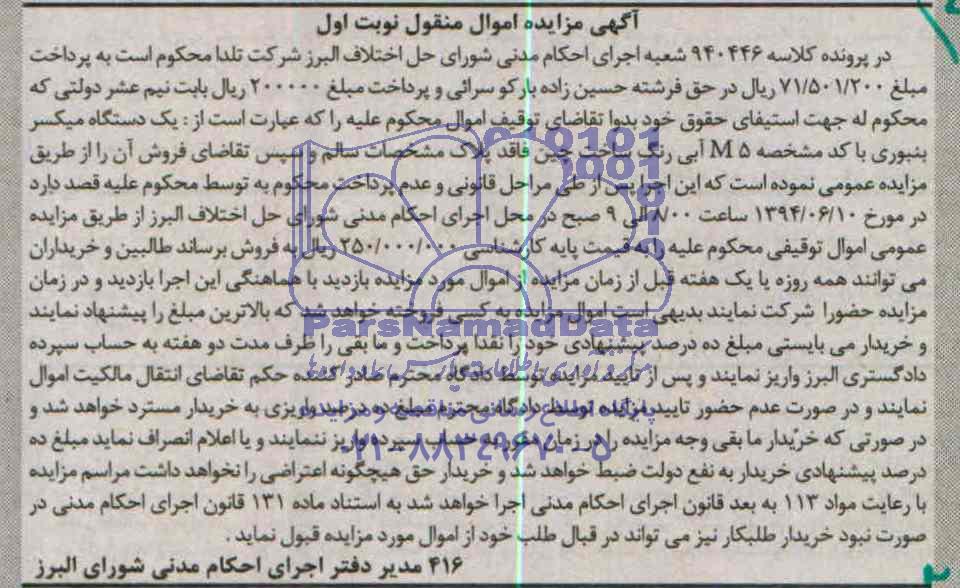 آگهی مزایده اموال منقول نوبت اول
در پرونده کلاسه ۹۴۰۴۴۶ شعبه اجرای احکام مدنی شورای حل اختلاف البرز شرکت تلدا محکوم است به پرداخت
مبلغ ۷۱/۵۰۱/۲۰۰ ریال در حق فرشته حسین زاده بارکو سرائی و پرداخت مبلغ ۲۰۰۰۰۰ ریال بابت نیم عشر دولتی که
محکوم له جهت استیفای حقوق خود بدوا تقاضای توقیف اموال محکوم علیه را که عبارت است از : یک دستگاه میکسر
پنیوری با کد مشخصه M ۵ آبی رنگ ساخت چین فاقد پلاک مشخصات سالم و سپس تقاضای فروش آن را از طریق
مزایده عمومی نموده است که این اجرا پس از طی مراحل قانونی و عدم پرداخت محکوم به توسط محکوم علیه قصد دارد
در مورخ ۱۳۹۴/۰۶/۱۰ ساعت ۸/۰۰ الی ۹ صبح در محل اجرای احکام مدنی شورای حل اختلاف البرز از طریق مزایده
عمومی اموال توقیفی محکوم علیه را به قیمت پایه کارشناسی ۲۵۰/۰۰۰/۰۰۰ ریال به فروش برساند طالبین و خریداران
می توانند همه روزه یا یک هفته قبل از زمان مزایده از اموال مورد مزایده بازدید با هماهنگی این اجرا بازدید و در زمان
مزایده حضورا شرکت نمایند بدیهی است اموال مزایده به کسی فروخته خواهد شد که بالاترین مبلغ را پیشنهاد نمایند
و خریدار می بایستی مبلغ ده درصد پیشنهادی خود را نقدا پرداخت و ما بقی را ظرف مدت دو هفته به حساب سپرده
دادگستری البرز واریز نمایند و پس از تایید مزایده توسط دادگاه محترم صادر کننده حکم تقاضای انتقال مالکیت اموال
نمایند و در صورت عدم حضور تایید مزایده توسط دادگاه محترم مبلغ ده درصد واریزی به خریدار مسترد خواهد شد و
در صورتی که خریدار ما بقی وجه مزایده را در زمان مقرر به حساب سپرده واریز ننمایند و یا اعلام انصراف نماید مبلغ ده
درصد پیشنهادی خریدار به نفع دولت ضبط خواهد شد و خریدار حق هیچگونه اعتراضی را نخواهد داشت مراسم مزایده
با رعایت مواد ۱۱۳ به بعد قانون اجرای احکام مدنی اجرا خواهد شد به استناد ماده ۱۳۱ قانون اجرای احکام مدنی در
صورت نبود خریدار طلبکار نیز می تواند در قبال طلب خود از اموال مورد مزایده قبول نماید .
۴۱۶ مدیر دفتر اجرای احکام مدنی شورای البرز
ParsNamadData
۰۲۱-۸۸۳۴۹۶۷۰-۵